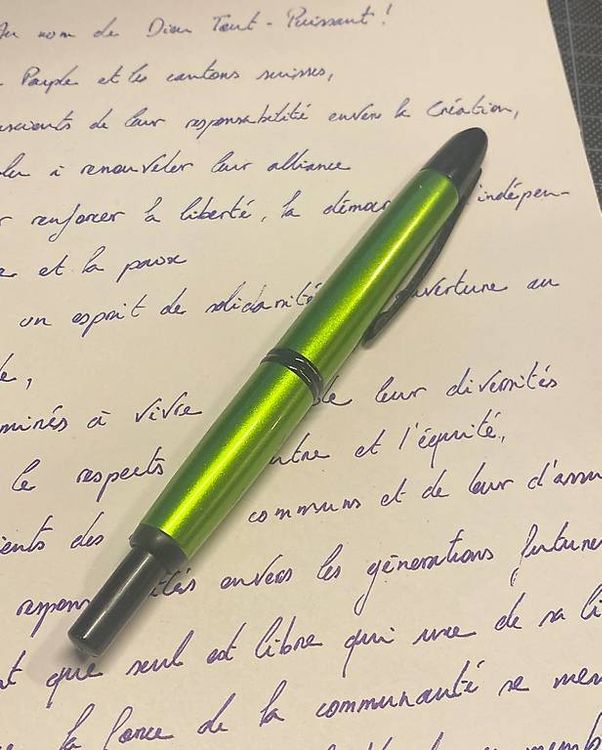 Au nom de Dieu Tout-Puissant!
Peuple et les cantons suisses,
uscients de leur responsabilité envers la Création,
lu à renouveler leur alliance
r renforcer la liberté, la démoc indépen-
e et la paix
un esprit de solidarité uverture au
de,
minés à vivre le leur diversités
le respects utre et l'équité,
ients des communs et de leur d'assu
respons ités envers les générations future
t que seul est libre qui use de sa li
la force de la communauté se me